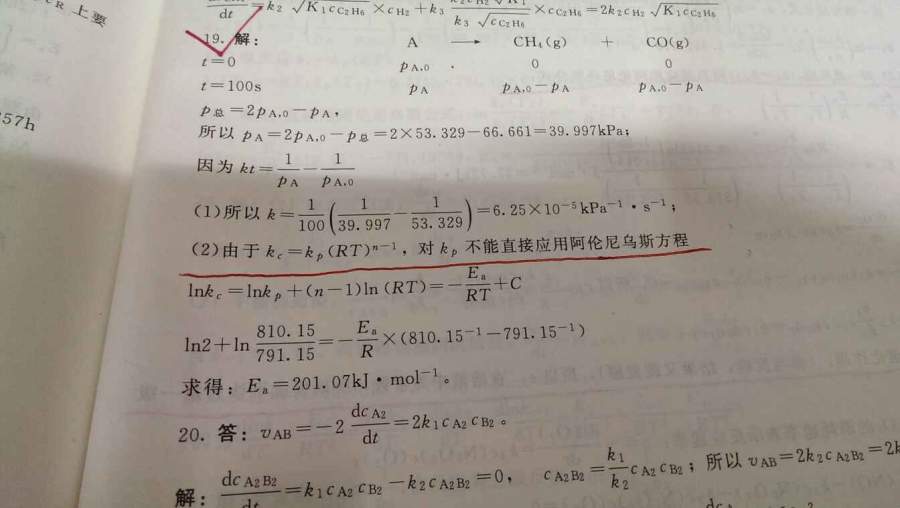 上要
57h
dt =k₂ √K₁c_C₂H₆ ×c_H₂+k₃ k₃ √c_C₂H₆ ×c_C₂H₆=2k₂c_H₂ √K₁c_C₂H₆
19. 解: A ⟶ CH₄(g) + CO(g)
t=0 p_A,0 0 0
t=100s p_A p_A,0−p_A p_A,0−p_A
p总=2p_A,0−p_A,
所以 p_A=2p_A,0−p总=2×53.329−66.661=39.997kPa;
因为 kt=1/p_A−1/p_A,0
(1)所以 k=1/100(1/39.997−1/53.329)=6.25×10⁻⁵kPa⁻¹·s⁻¹;
(2)由于 k_c=k_p(RT)ⁿ⁻¹, 对 k_p 不能直接应用阿伦尼乌斯方程
lnk_c=lnk_p+(n−1)ln(RT)=−E_a/RT+C
ln2+ln 810.15/791.15=−E_a/R×(810.15⁻¹−791.15⁻¹)
求得: E_a=201.07kJ·mol⁻¹。
20. 答: v_AB=−2 dc_A2/dt=2k₁c_A2c_B2。
解: dc_A2B2/dt=k₁c_A2c_B2−k₂c_A2B2=0, c_A2B2=k₁/k₂ c_A2c_B2; 所以 v_AB=2k₂c_A2B2=2k